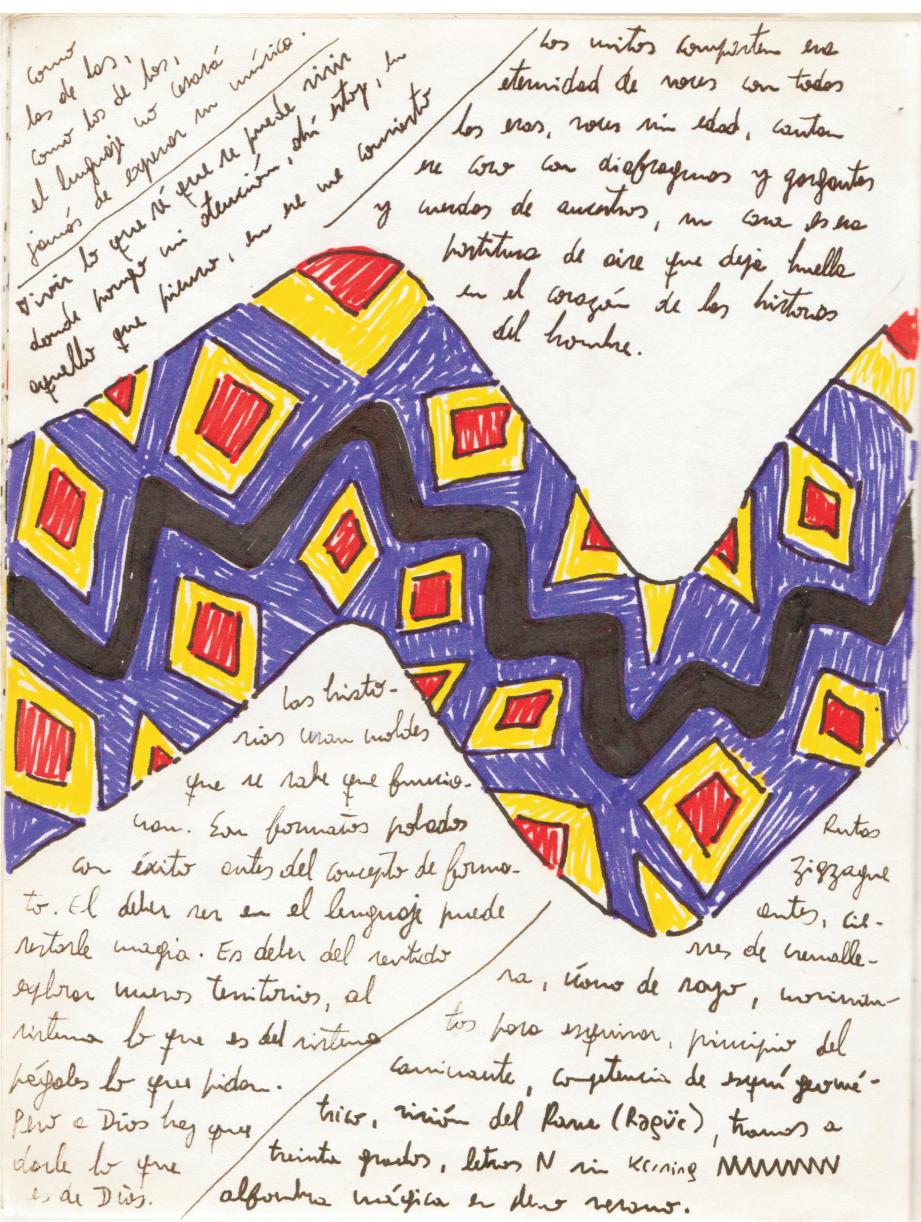 como
las de las,
como los de los,
el lenguaje no cesará
jamás de expresar su música.
Vivir lo que sé que se puede vivir
donde pongo mi atención, ahí estoy, en
aquello que pienso, en ese me convierto
Los mitos comparten esa
eternidad de voces con todas
las eras, voces sin edad, cantan
ese coro con diafragmas y gargantas
y cuerdas de ancestros, su cara es esa
partitura de aire que deja huella
en el corazón de las historias
del hombre.
Las histo-
rias usan moldes
que se sabe que funcio-
nan. Son formatos probados
con éxito antes del concepto de forma-
to. El deber ser en el lenguaje puede
restarle magia. Es deber del sentido
explorar nuevos territorios, al
sistema lo que es del sistema
págales lo que pidan.
Pero a Dios hay que
darle lo que
es de Dios.
Rutas
zigzague
antes, cie-
rres de cremalle-
ra, ícono de rayo, movimien-
tos para esquivar, principio del
caminante, competencia de esquí geomé-
trico, visión del Rave (Ragüe), tramos a
treinta grados, letras N sin Kerning NNNNNN
alfombra mágica en pleno verano.